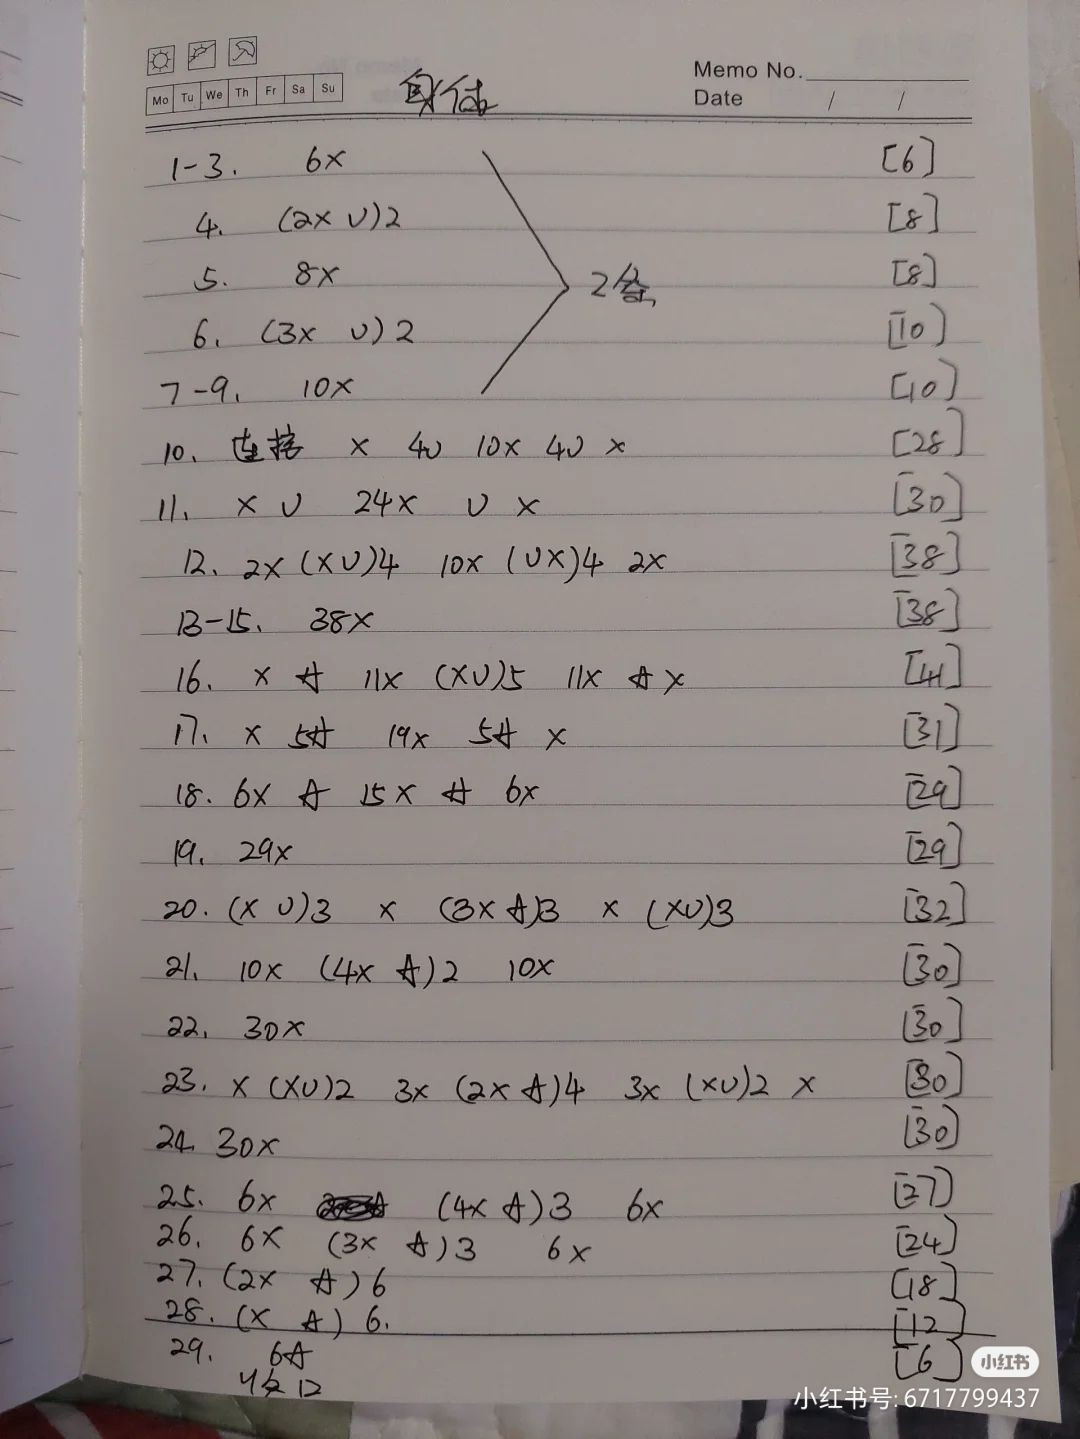 Memo No.
Mo Tu We Th Fr Sa Su
Date / /
1-3. 6x [6]
4. (2x ∪)2 [8]
5. 8x [8]
2份
6. (3x ∪)2 [10]
7-9. 10x [10]
10. 连接 x 4∪ 10x 4∪ x [28]
11. x ∪ 24x ∪ x [30]
12. 2x (x∪)4 10x (∪x)4 2x [38]
13-15. 38x [38]
16. x A 11x (x∪)5 11x A x [41]
17. x 5A 19x 5A x [31]
18. 6x A 15x A 6x [29]
19. 29x [29]
20. (x ∪)3 x (3x A)3 x (x∪)3 [32]
21. 10x (4x A)2 10x [30]
22. 30x [30]
23. x (x∪)2 3x (2x A)4 3x (x∪)2 x [30]
24. 30x [30]
25. 6x (4x A)3 6x [27]
26. 6x (3x A)3 6x [24]
27. (2x A)6 [18]
28. (x A) 6. [12]
29. 6A [6]
小红书
小红书号: 6717799437